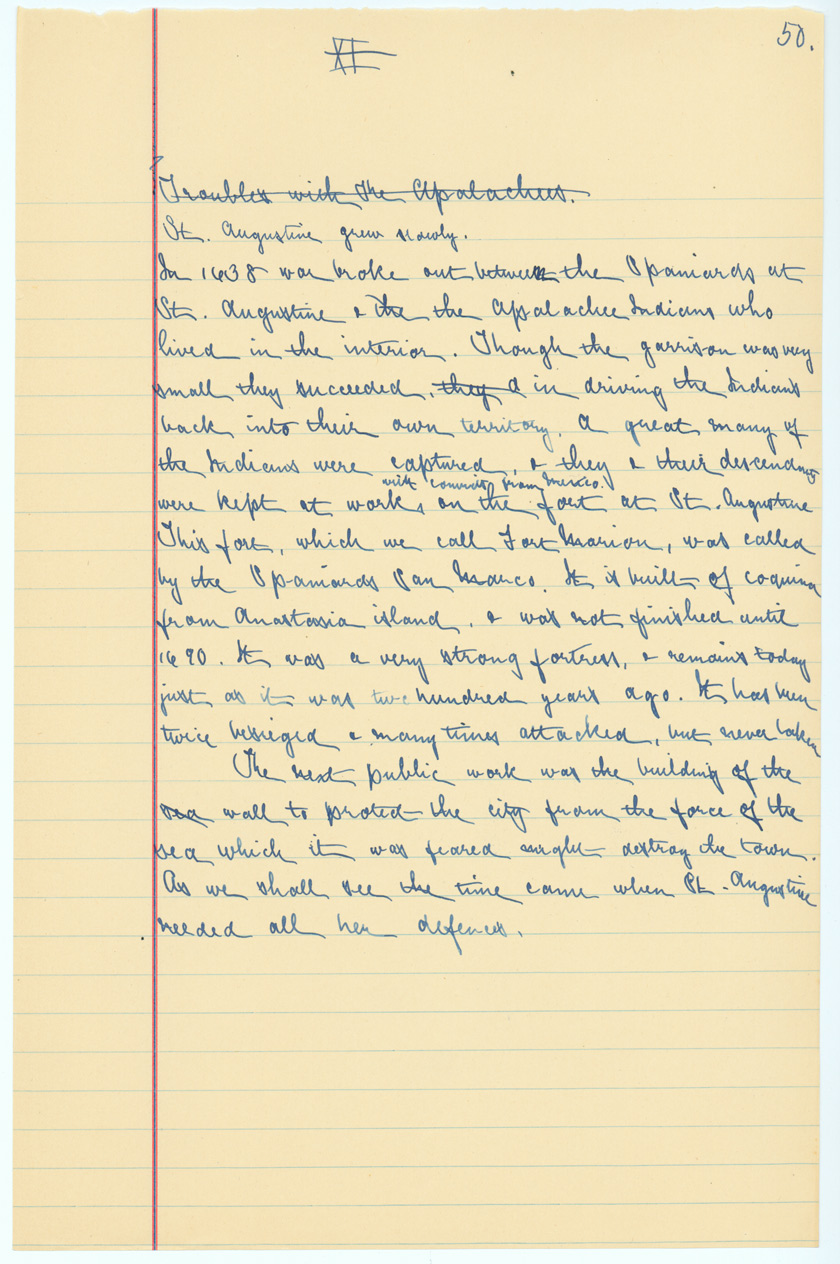 50.
XI
Troubles with the Apalachees.
St. Augustine grew slowly.
In 1638 war broke out between the Spaniards at
St. Augustine & the the Apalachee Indians who
lived in the interior. Though the garrison was very
small they succeeded, they d in driving the Indians
back into their own territory. A great many of
the Indians were captured, & they & their descendants
with convicts from Mexico.
were kept at work, on the fort at St. Augustine
This fort, which we call Fort Marion, was called
by the Spaniards San Marco. It is built of coquina
from Anastasia island, & was not finished until
1690. It was a very strong fortress, & remains today
just as it was two hundred years ago. It has been
twice besieged & many times attacked, but never taken
The next public work was the building of the
sea wall to protect the city from the force of the
sea which it was feared might destroy the town.
As we shall see the time came when St. Augustine
needed all her defences.